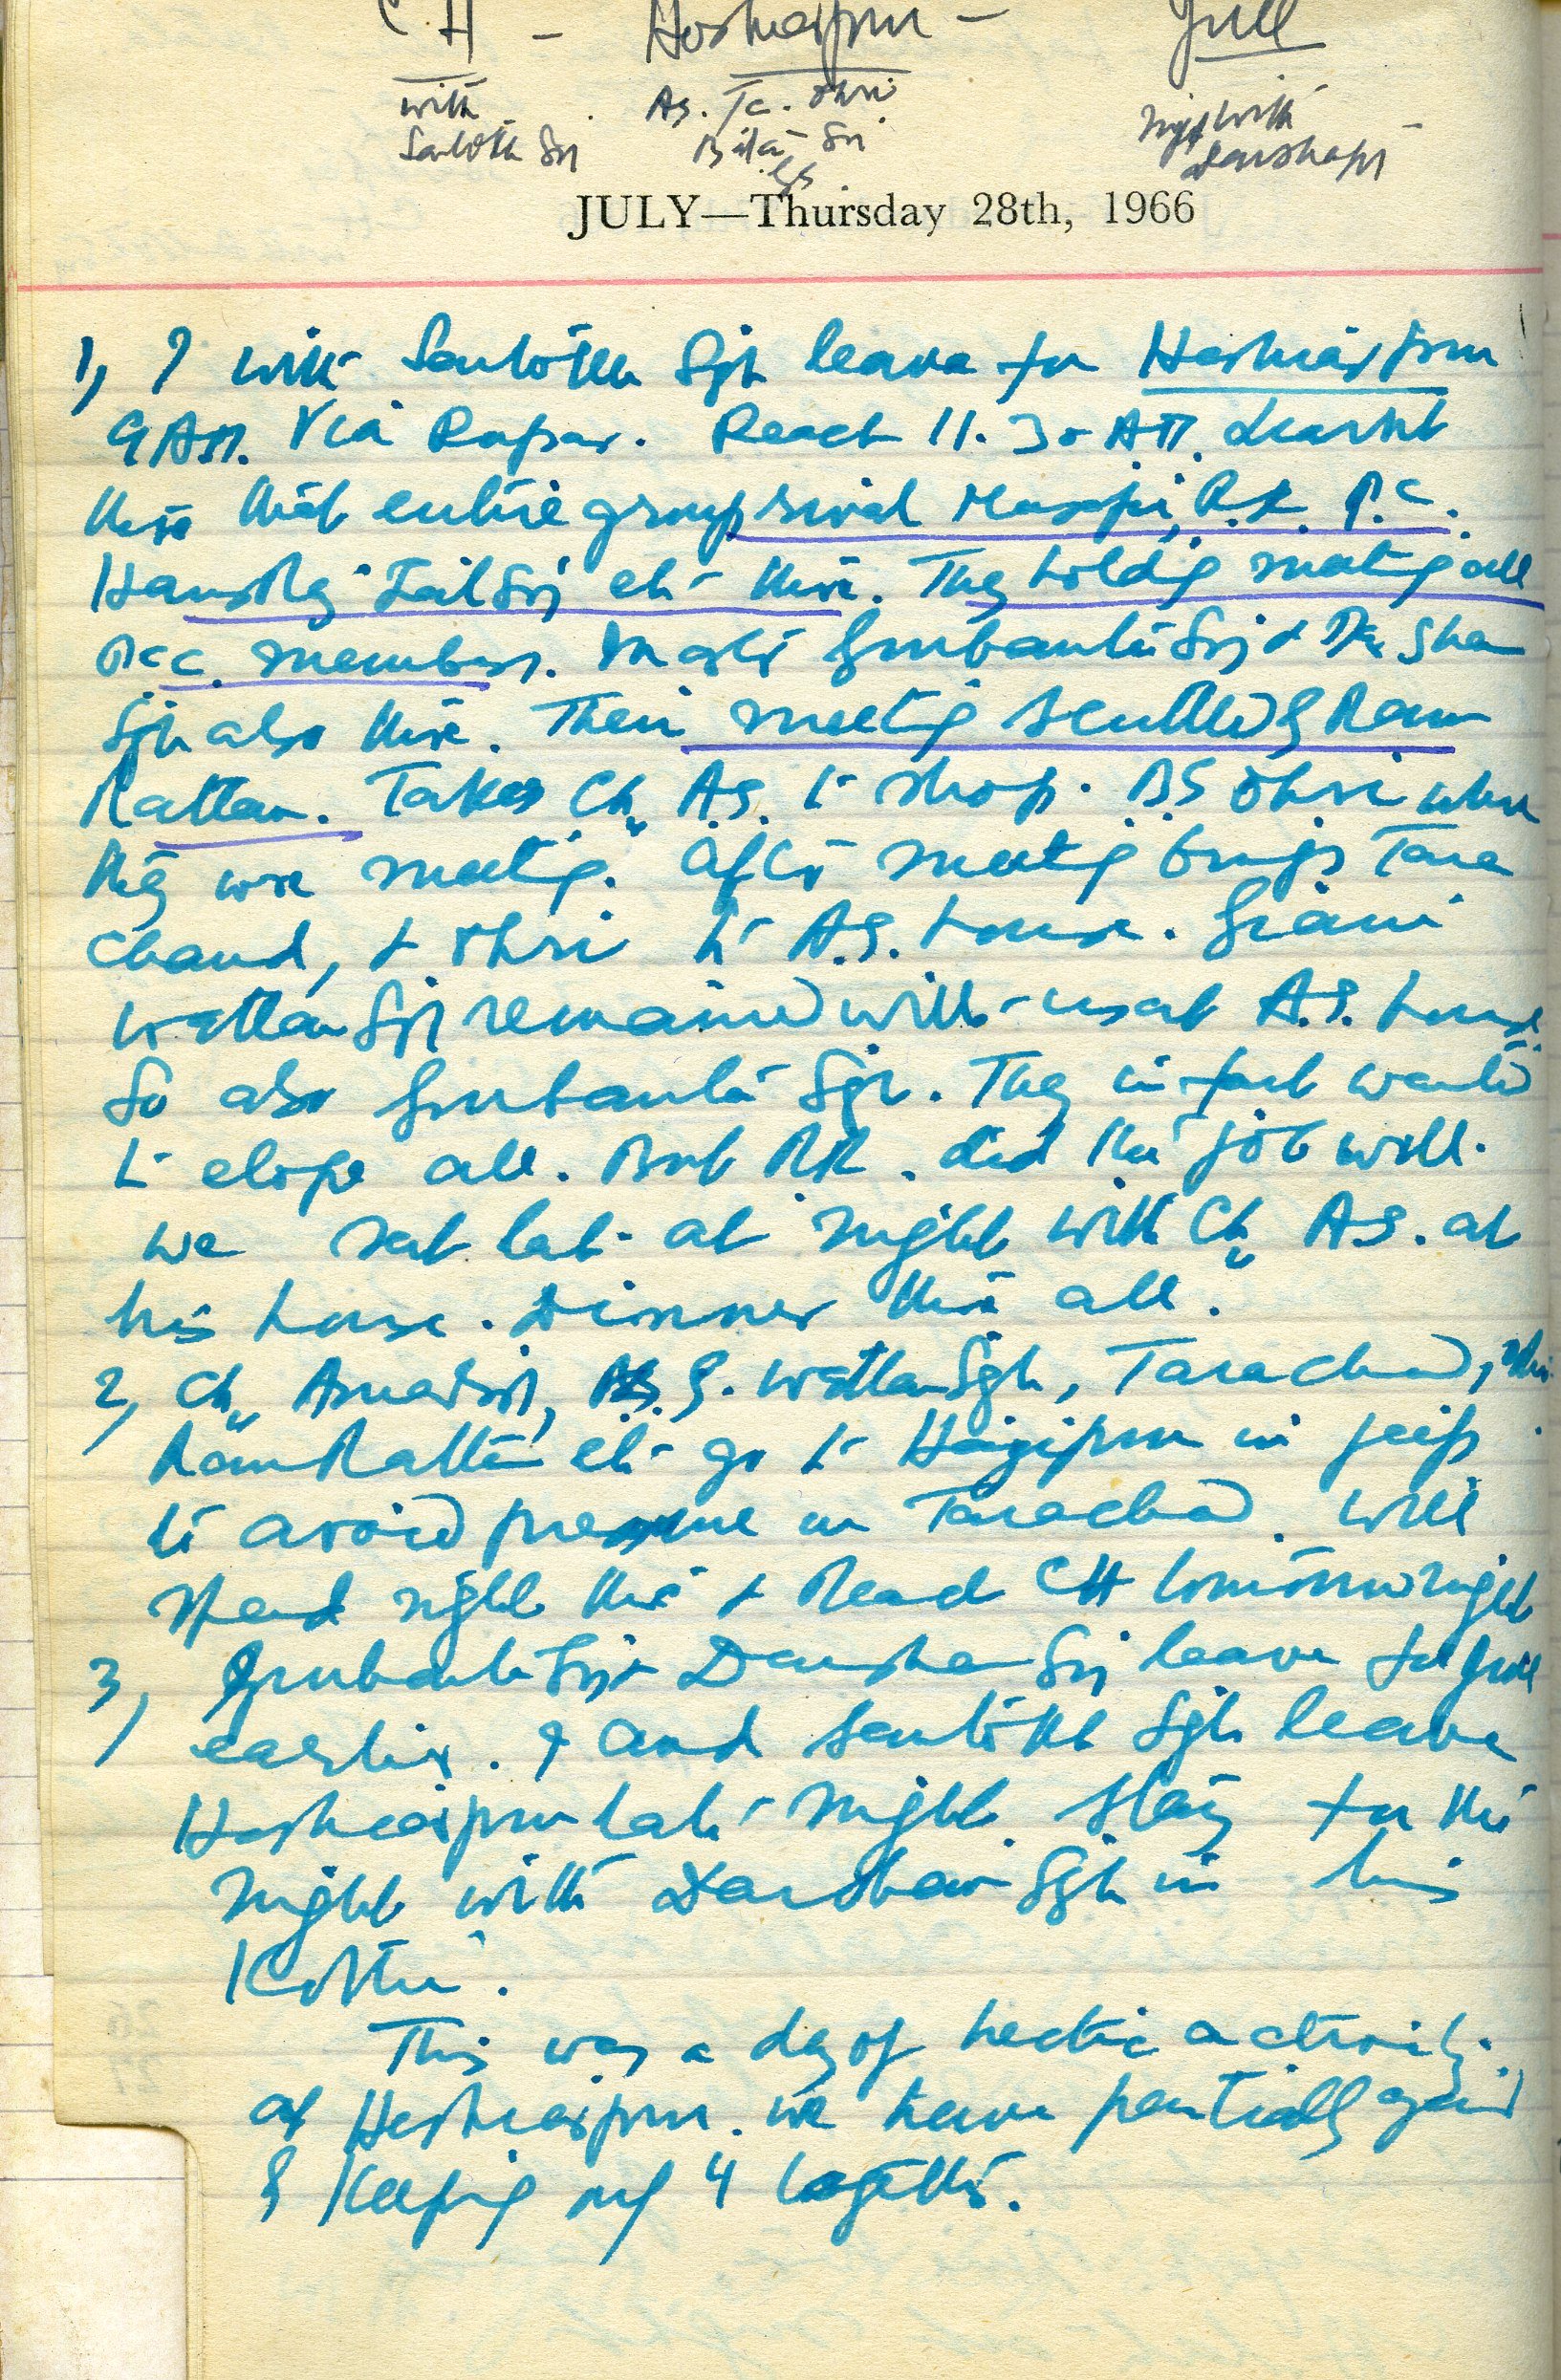 CH - Hoshiarpur - Jull
with AS. Tc. Ohri Night with
Santokh Sgh Sgh Darshan
JULY—Thursday 28th, 1966
1, I with Santokh Sgh leave for Hoshiarpur
9 AM. Via Rupar. Reach 11.30 AM. Learnt
there that entire group rival Musafir, R.K. P.C.
Hans Raj Jail Sgh etc there. They holdig meetig all
PCC. members. Master Gurbanta Sgh & Dr. Sha
Sgh also there. Their meetig scuttled by Ram
Rattan. Takes Ch. A.S. to shop. BS Ohri where
they were meetig. After meetig brigs Tara
Chand, & Ohri to A.S. house. Giani
Wattan Sgh remained with us at A.S. house.
So also Gurbanta Sgh. They in fact wanted
to elope all. But RR. did the job well.
We sat late at night with Ch. A.S. at
his house. Dinner there all.
2, Ch. Amar Sgh, G. Wattan Sgh, Tarachand, Ohri
Ram Rattan etc go to Hajipur in jeep
to avoid pressure on Tarachand. Will
spend night there & Reach CH tomorrow night
3, Gurbanta Sgh & Darshan Sgh leave for Jull
earlier. I and Santokh Sgh leave
Hoshiarpur late night. Stay for the
night with Darshan Sgh in his
Kothi.
This was a day of hectic activity.
at Hoshiarpur. We have partially gained
by Keeping up 4 together.